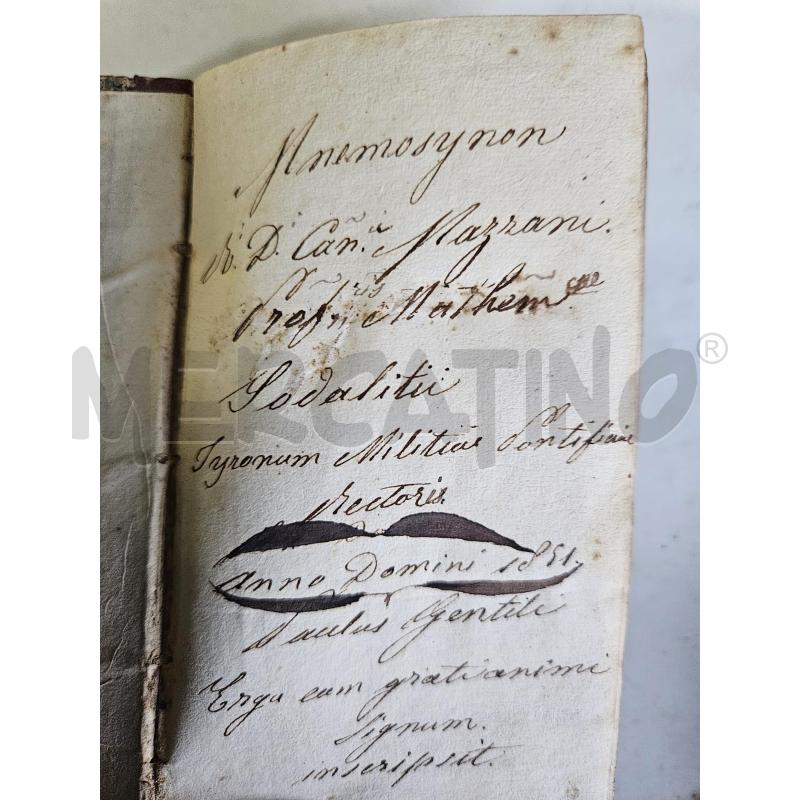 Mnemosynon
R. D. Cañ.ci Mazzani.
Profris Mathemcae
Sodalitii
Tyronum Militiae Pontificiae
Rectoris.
Anno Domini 1851.
Paulus Gentili
Ergo eum grati animi
Signum.
inscripsit.
MERCATINO®